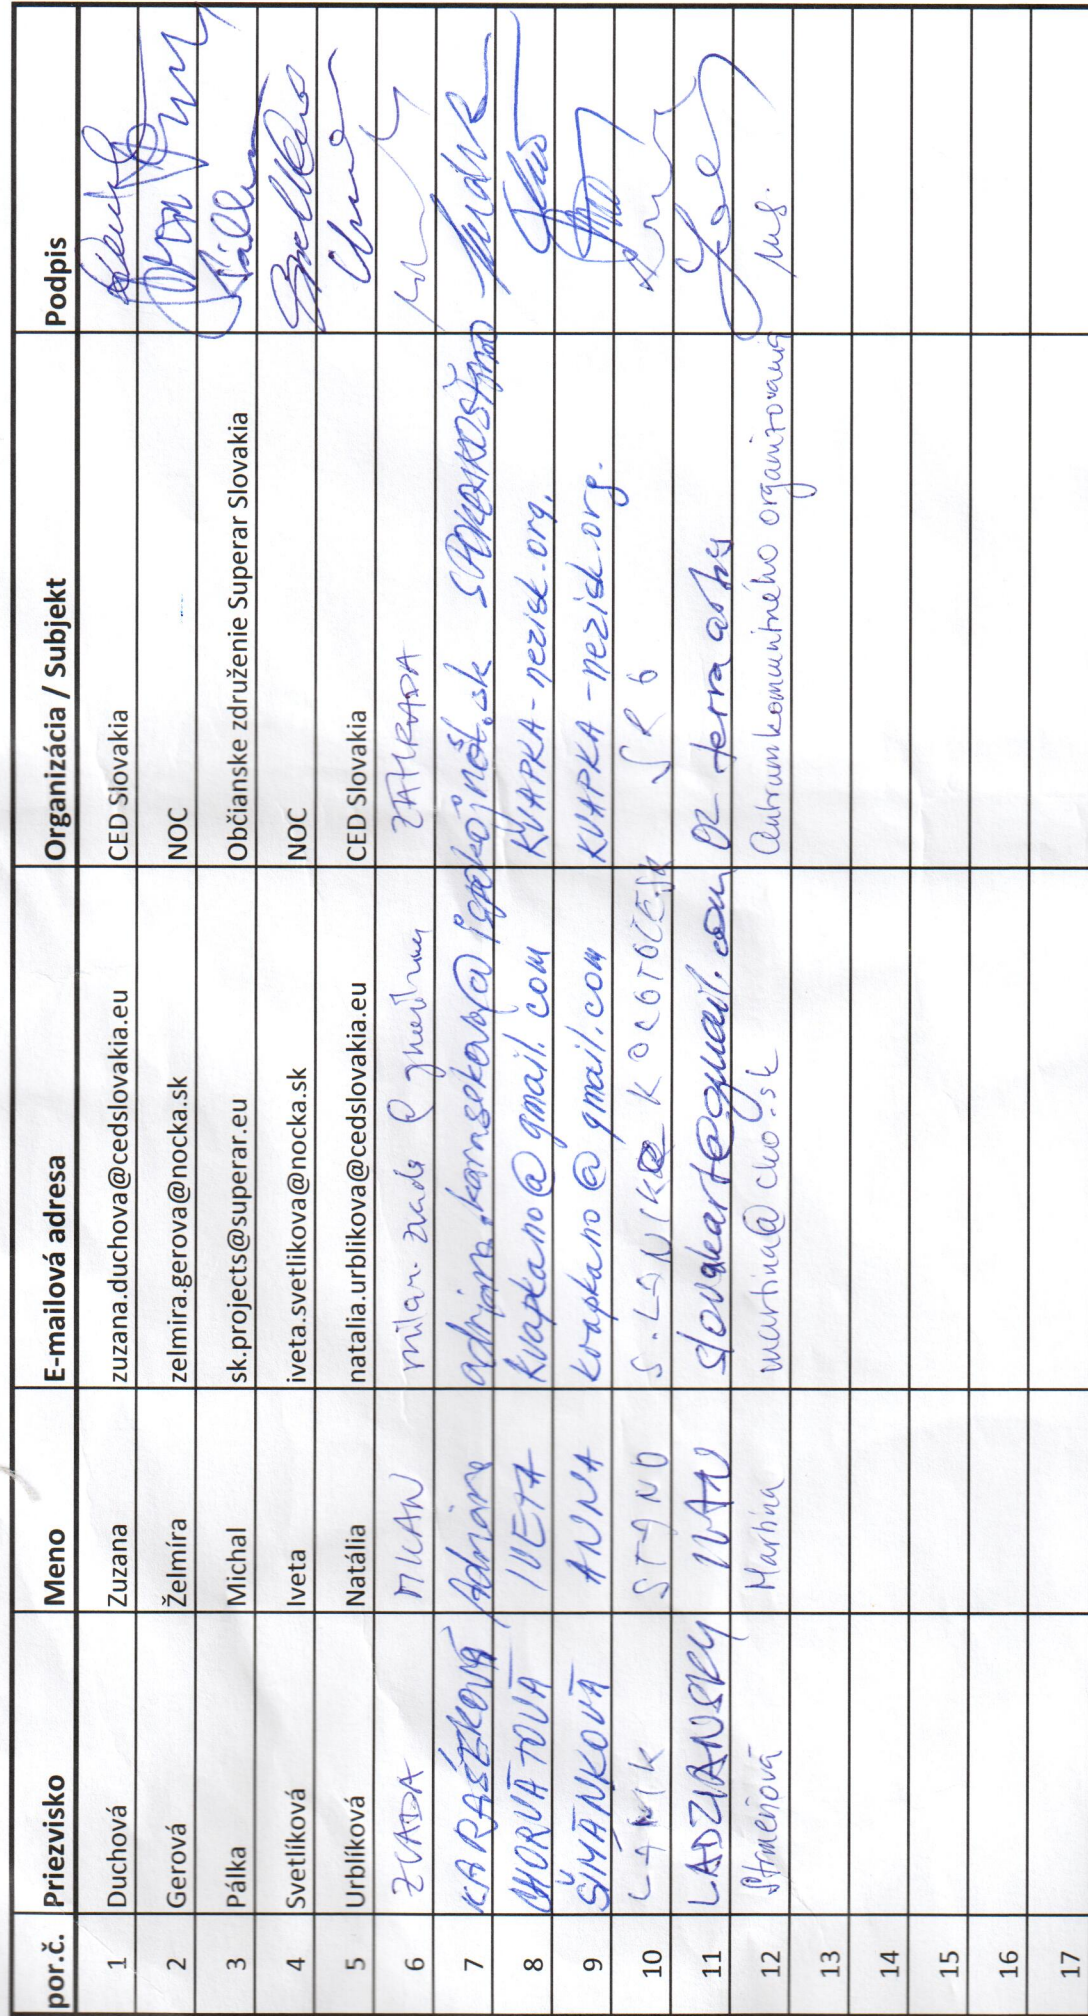 por.č. Priezvisko Meno E-mailová adresa Organizácia / Subjekt Podpis
1 Duchová Zuzana zuzana.duchova@cedslovakia.eu CED Slovakia
2 Gerová Želmíra zelmira.gerova@nocka.sk NOC
3 Pálka Michal sk.projects@superar.eu Občianske združenie Superar Slovakia
4 Svetlíková Iveta iveta.svetlikova@nocka.sk NOC
5 Urblíková Natália natalia.urblikova@cedslovakia.eu CED Slovakia
6 ZVADA MILAN milan.zvada@ ZÁHRADA
7 Adriana
8 CHORVÁTOVÁ IVETA kvapkano@gmail.com KVAPKA-nezisk.org.
9 ŠIMÁNKOVÁ ANNA kvapkano@gmail.com KVAPKA-nezisk.org.
10 STANO
11 LADZIANSKY IVAN slovakart@gmail.com OZ terra artis
12 Martina martina@cko.sk Centrum komunitného organizovania
13
14
15
16
17